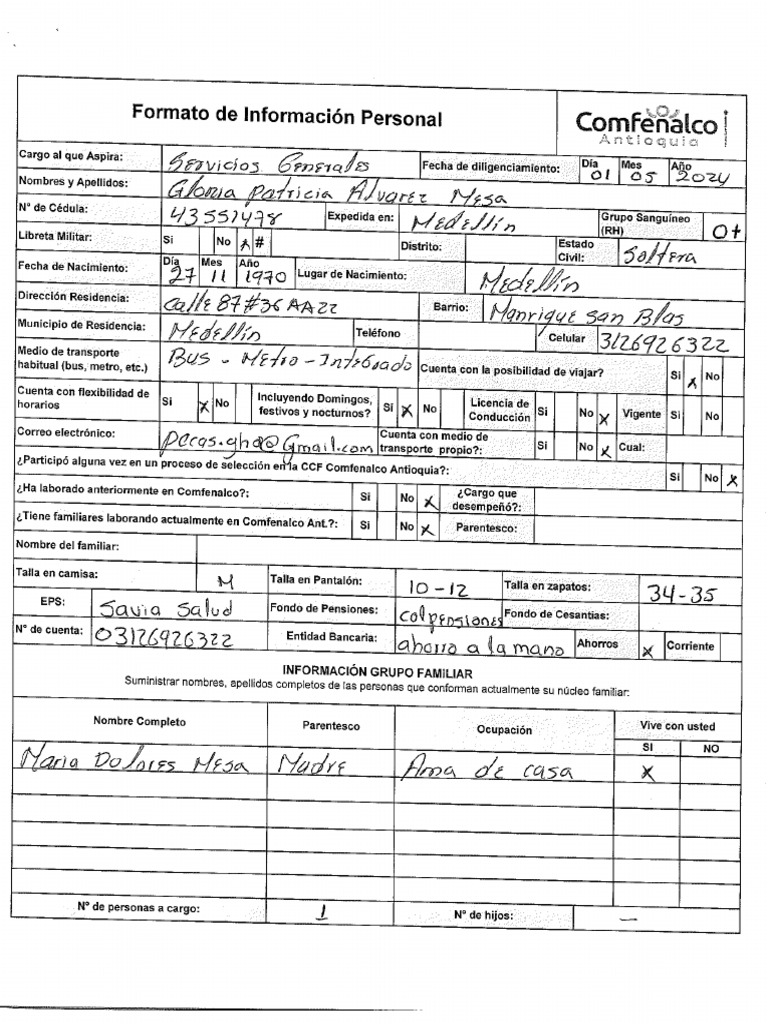 Formato de Información Personal
Comfenalco
Antioquia
Cargo al que Aspira: Servicios Generales Fecha de diligenciamiento: Día 01 Mes 05 Año 2024
Nombres y Apellidos: Gloria Patricia Alvarez Mesa
N° de Cédula: 43551478 Expedida en: Medellín Grupo Sanguíneo (RH) O+
Libreta Militar: Si No x # Distrito: Estado Civil: Soltera
Fecha de Nacimiento: Día 27 Mes 11 Año 1970 Lugar de Nacimiento: Medellín
Dirección Residencia: Calle 87 #36 AA22 Barrio: Manrique San Blas
Municipio de Residencia: Medellín Teléfono Celular 3126926322
Medio de transporte habitual (bus, metro, etc.) Bus - Metro - Integrado Cuenta con la posibilidad de viajar? Si x No
Cuenta con flexibilidad de horarios Si x No Incluyendo Domingos, festivos y nocturnos? Si x No Licencia de Conducción Si No x Vigente Si No
Correo electrónico: pecas.gha@Gmail.com Cuenta con medio de transporte propio?: Si No x Cual:
¿Participó alguna vez en un proceso de selección en la CCF Comfenalco Antioquia?: Si No x
¿Ha laborado anteriormente en Comfenalco?: Si No x ¿Cargo que desempeñó?:
¿Tiene familiares laborando actualmente en Comfenalco Ant.?: Si No x Parentesco:
Nombre del familiar:
Talla en camisa: M Talla en Pantalón: 10-12 Talla en zapatos: 34-35
EPS: Savia Salud Fondo de Pensiones: colpensiones Fondo de Cesantias:
N° de cuenta: 03126926322 Entidad Bancaria: ahorro a la mano Ahorros x Corriente
INFORMACIÓN GRUPO FAMILIAR
Suministrar nombres, apellidos completos de las personas que conforman actualmente su núcleo familiar:
Nombre Completo Parentesco Ocupación Vive con usted
SI NO
Maria Dolores Mesa Madre Ama de casa x
N° de personas a cargo: 1 N° de hijos: —